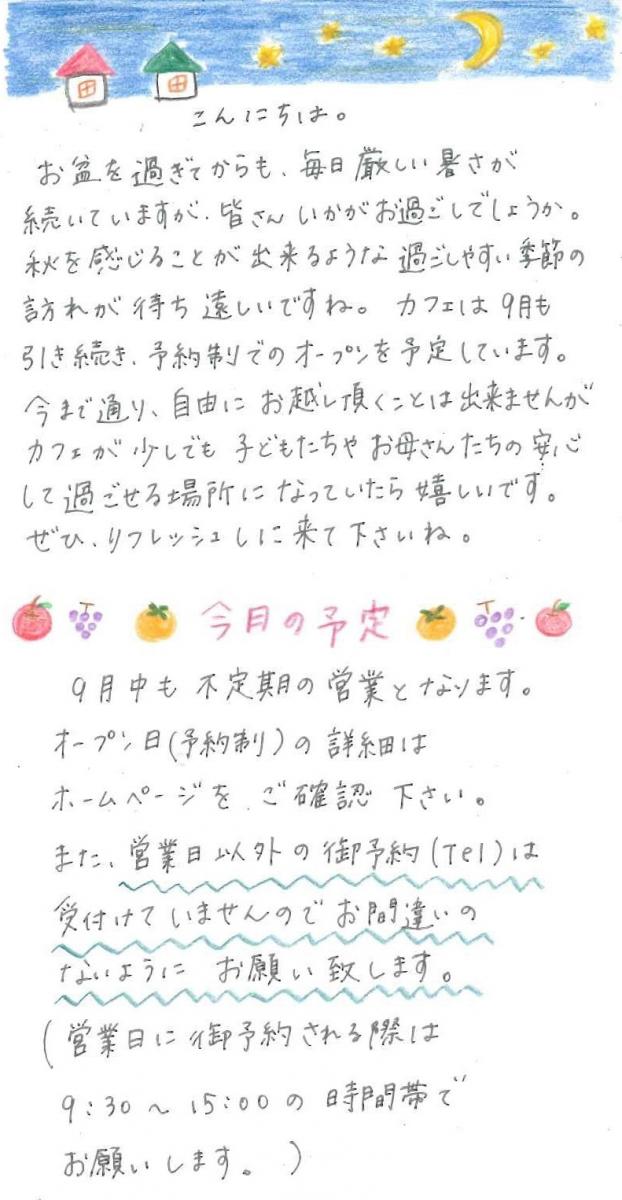 こんにちは。
お盆を過ぎてからも、毎日厳しい暑さが
続いていますが、皆さんいかがお過ごしでしょうか。
秋を感じることが出来るような過ごしやすい季節の
訪れが待ち遠しいですね。カフェは9月も
引き続き、予約制でのオープンを予定しています。
今まで通り、自由にお越し頂くことは出来ませんが
カフェが少しでも子どもたちやお母さんたちの安心
して過ごせる場所になっていたら嬉しいです。
ぜひ、リフレッシュしに来て下さいね。
今月の予定
9月中も不定期の営業となります。
オープン日(予約制)の詳細は
ホームページをご確認下さい。
また、営業日以外の御予約(Tel)は
受付けていませんのでお間違いの
ないようにお願い致します。
(営業日に御予約される際は
9:30〜15:00の時間帯で
お願いします。)